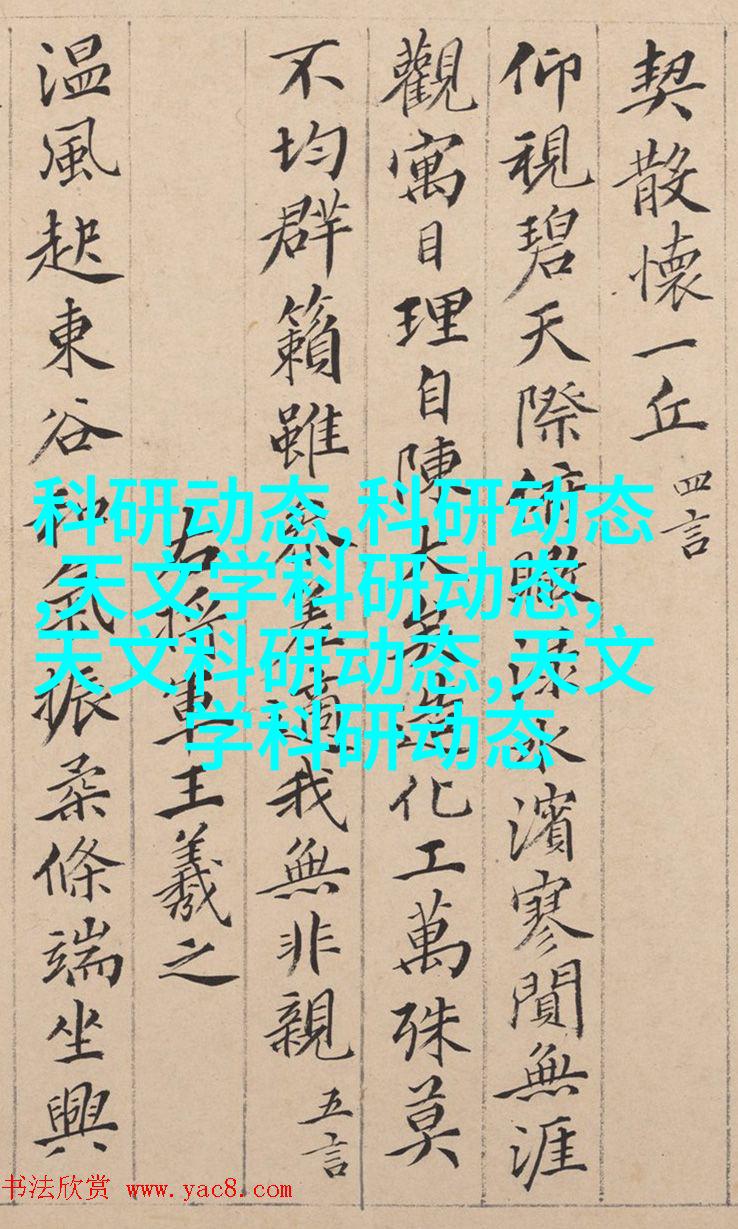 契散懷一丘 四言
仰視碧天際俯瞰淥水濱寥閴無涯
觀寓目理自陳大矣造化工萬殊莫
不均群籟雖參差適我無非親 五言
右將軍王羲之
温風起東谷和氣振柔條端坐興
科研动态,科研动态
,天文学科研动态,
天文科研动态,天文
学科研动态
书法欣赏 www.yac8.com